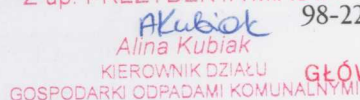 Z up. PREZYDENTA
AKubiak 98-22
Alina Kubiak
KIEROWNIK DZIAŁU GŁÓW
GOSPODARKI ODPADAMI KOMUNALNYMI